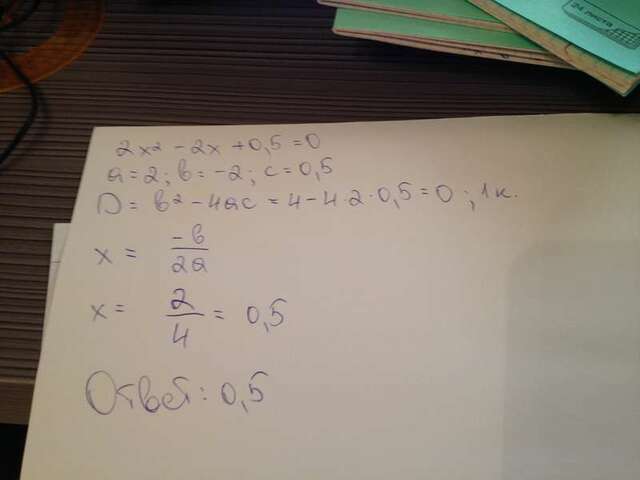 24 листа
2x² - 2x + 0,5 = 0
a = 2; b = -2; c = 0,5
D = b² - 4ac = 4 - 4·2·0,5 = 0; 1 к.
x = -b/2a
x = 2/4 = 0,5
Ответ: 0,5